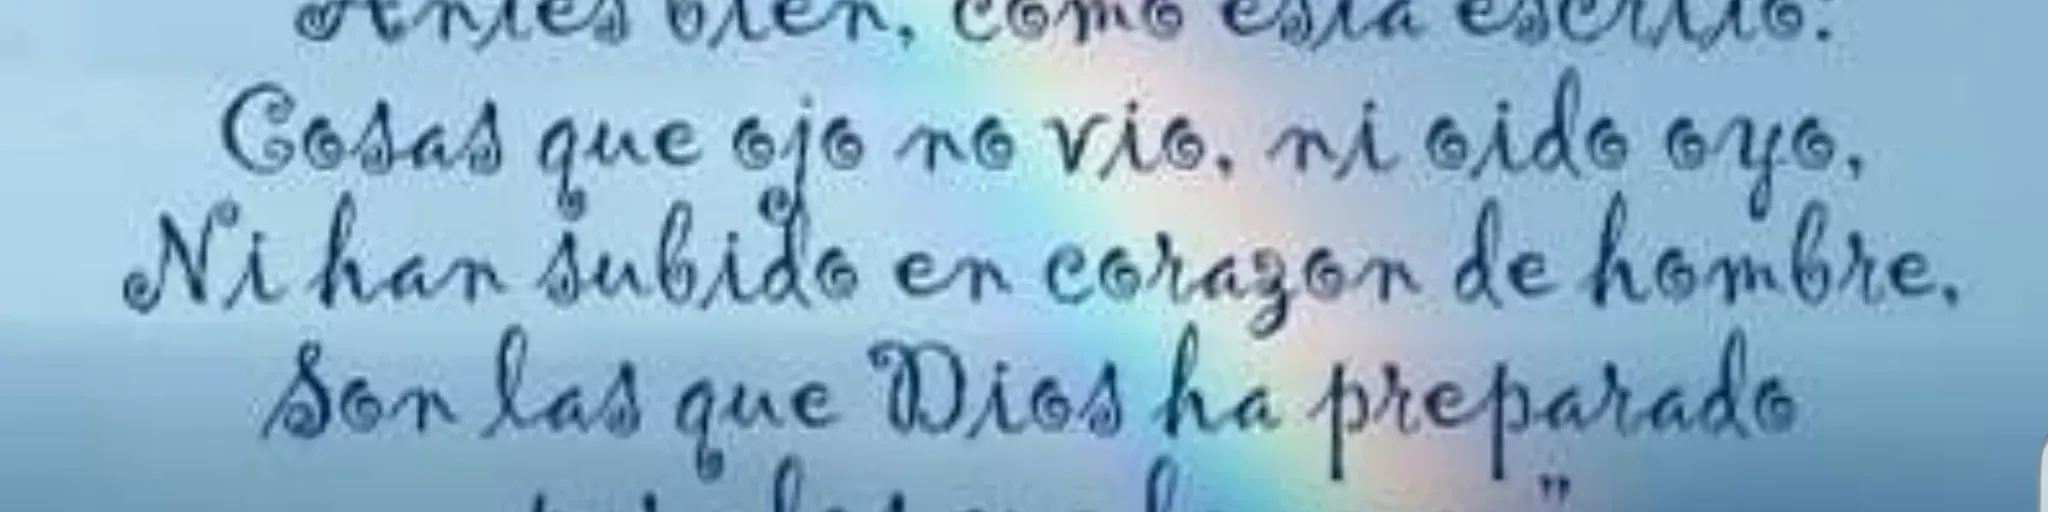 Antes bien, como esta escrito:
Cosas que ojo no vio, ni oido oyo,
Ni han subido en corazon de hombre,
Son las que Dios ha preparado